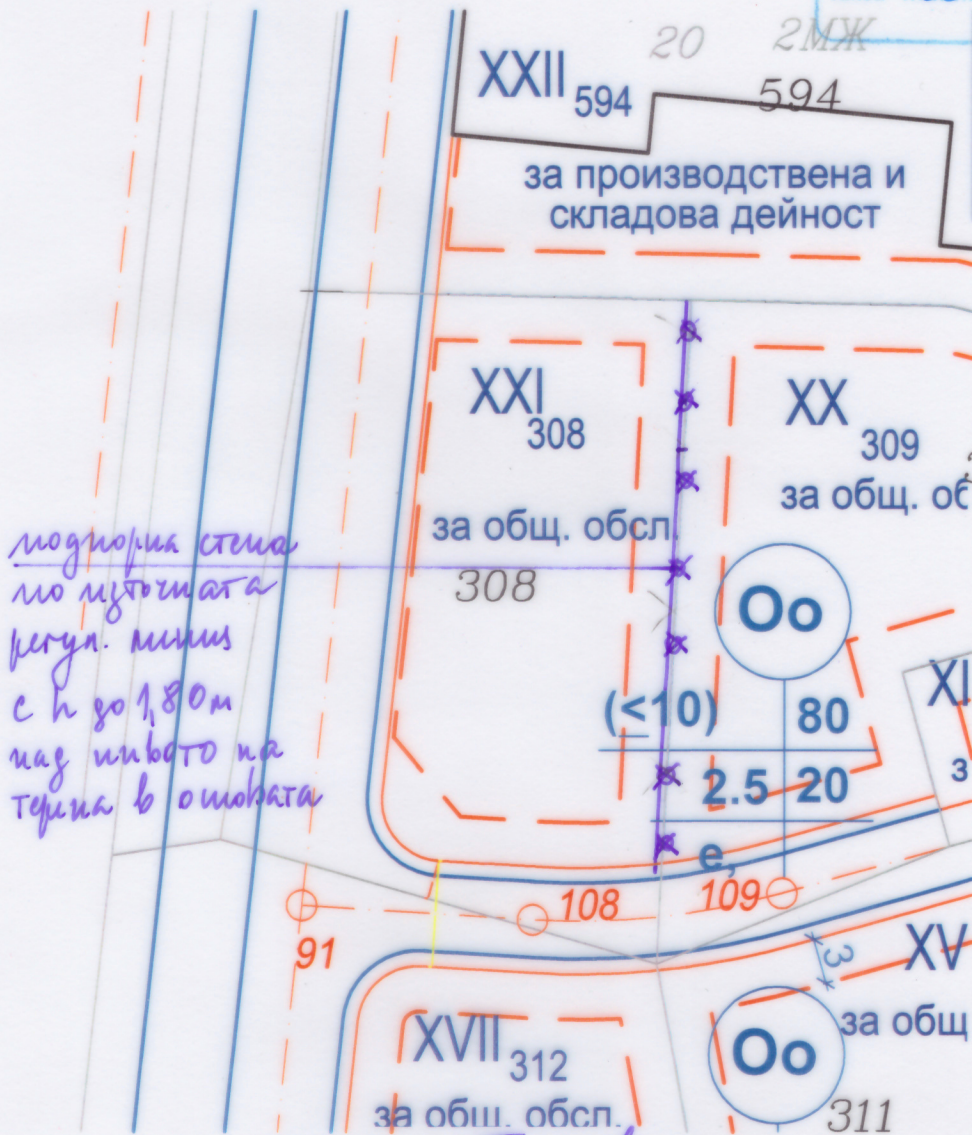 20 2МЖ
XXII 594
594
за производствена и
складова дейност
XXI
308
за общ. обсл.
308
XX
309
за общ. об
подпорна стена
по източната
регул. линия
с h до 1,80м
над нивото на
терена в основата
Оо
(<10) 80
2.5 20
е,
XI
з
108
109
91
3
XV
за общ
XVII 312
за общ. обсл.
Оо
311